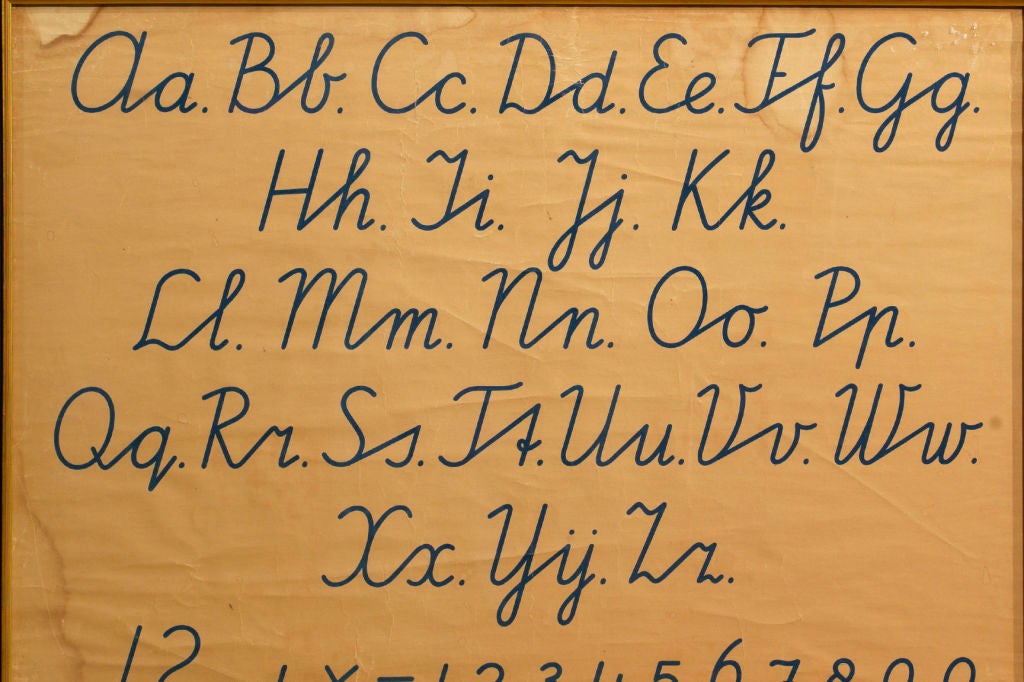 Aa. Bb. Cc. Dd. Ee. Ff. Gg.
Hh. Ii. Jj. Kk.
Ll. Mm. Nn. Oo. Pp.
Qq. Rr. Ss. Tt. Uu. Vv. Ww.
Xx. Yij. Zz.
12 1 2 3 4 5 6 7 8 9 0